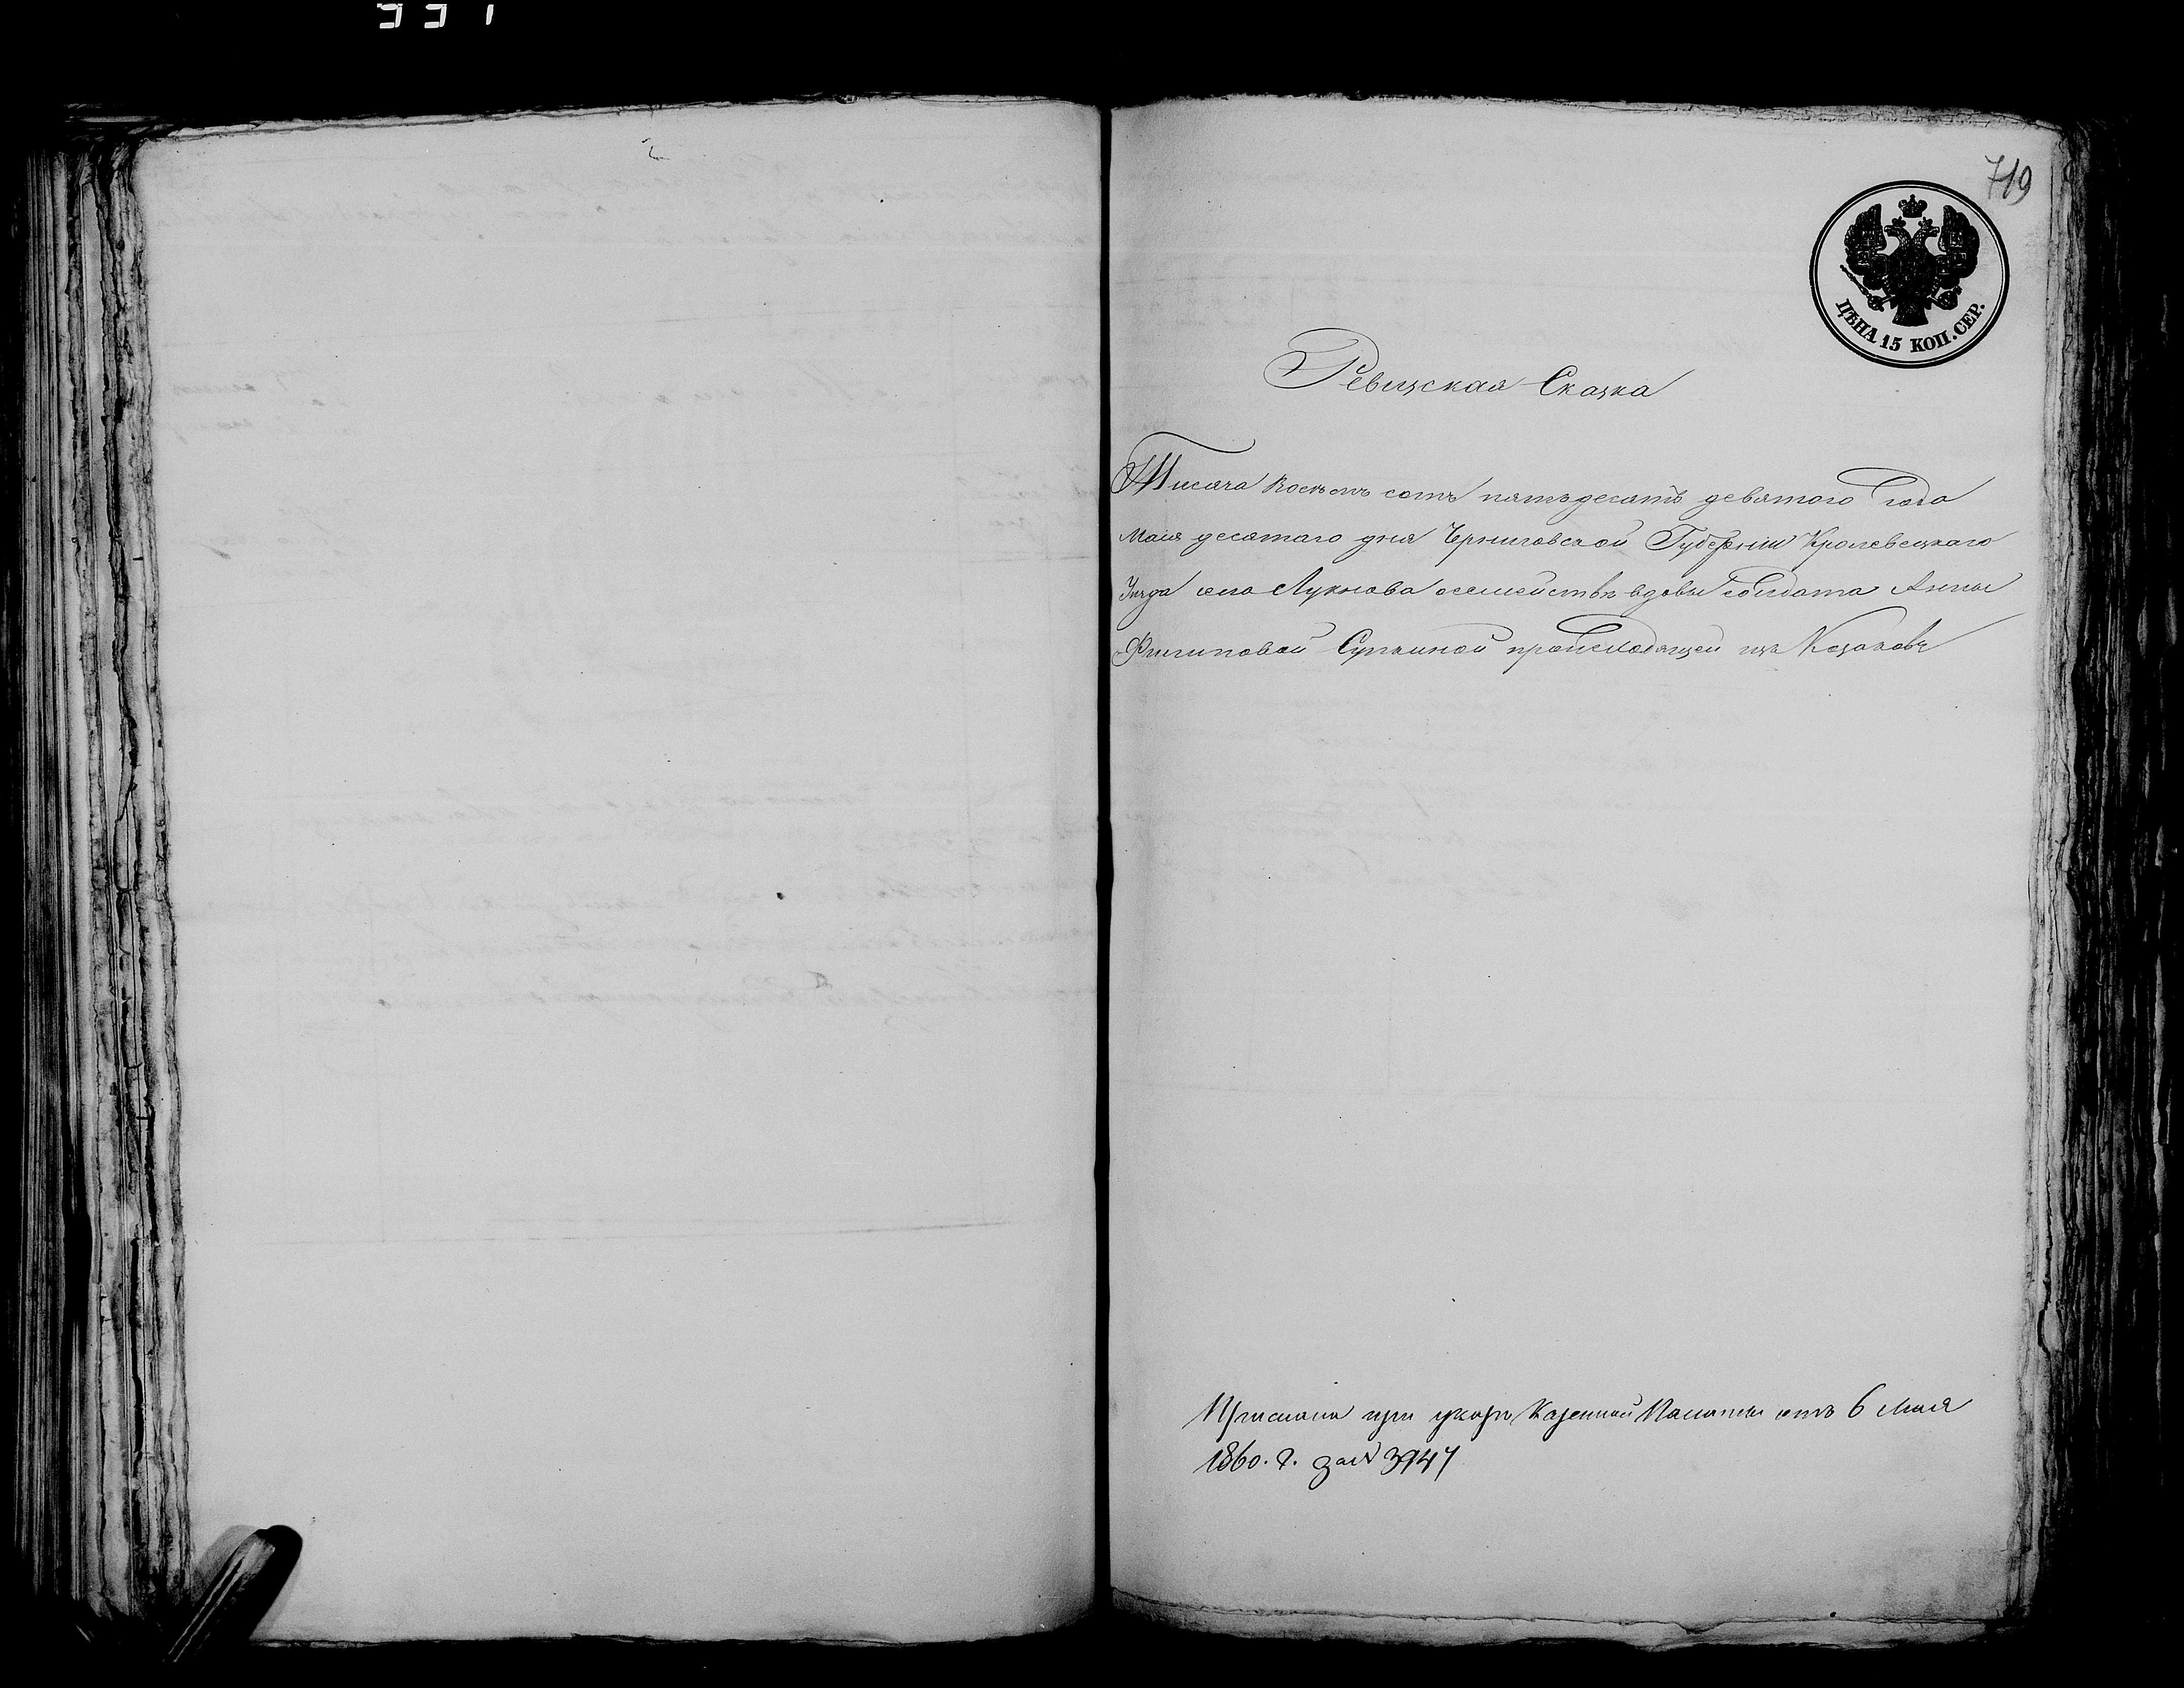 719
ЦѢНА 15 КОП. СЕР.
Ревизская Сказка
Тисяча Восемь сотъ пятьдесятъ девятого года
Мая десятаго дня Черниговской Губерніи Кролевецкаго
Уезда села Лукнова осемействѣ вдовы солдата Анны
Филиповой происходящей изъ Козаковъ
Прислана при указѣ Казенной Палаты отъ 6 Мая
1860. г. за №